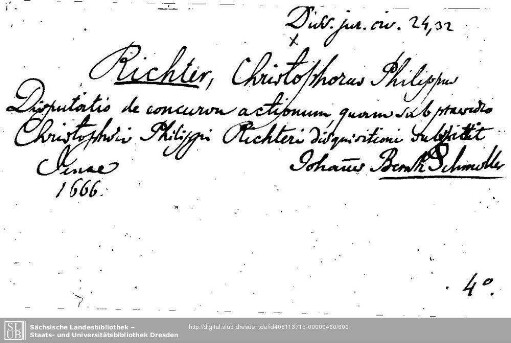 Diss. jur. civ. 24,32
x
Richter, Christophorus Philippus
Disputatio de concursu actionum quam sub praesidio
Christophori Philippi Richteri disquisitioni submittit
Jenae Johannes Bernh. Schmoller
1666.
4°.
Sächsische Landesbibliothek –
Staats- und Universitätsbibliothek Dresden